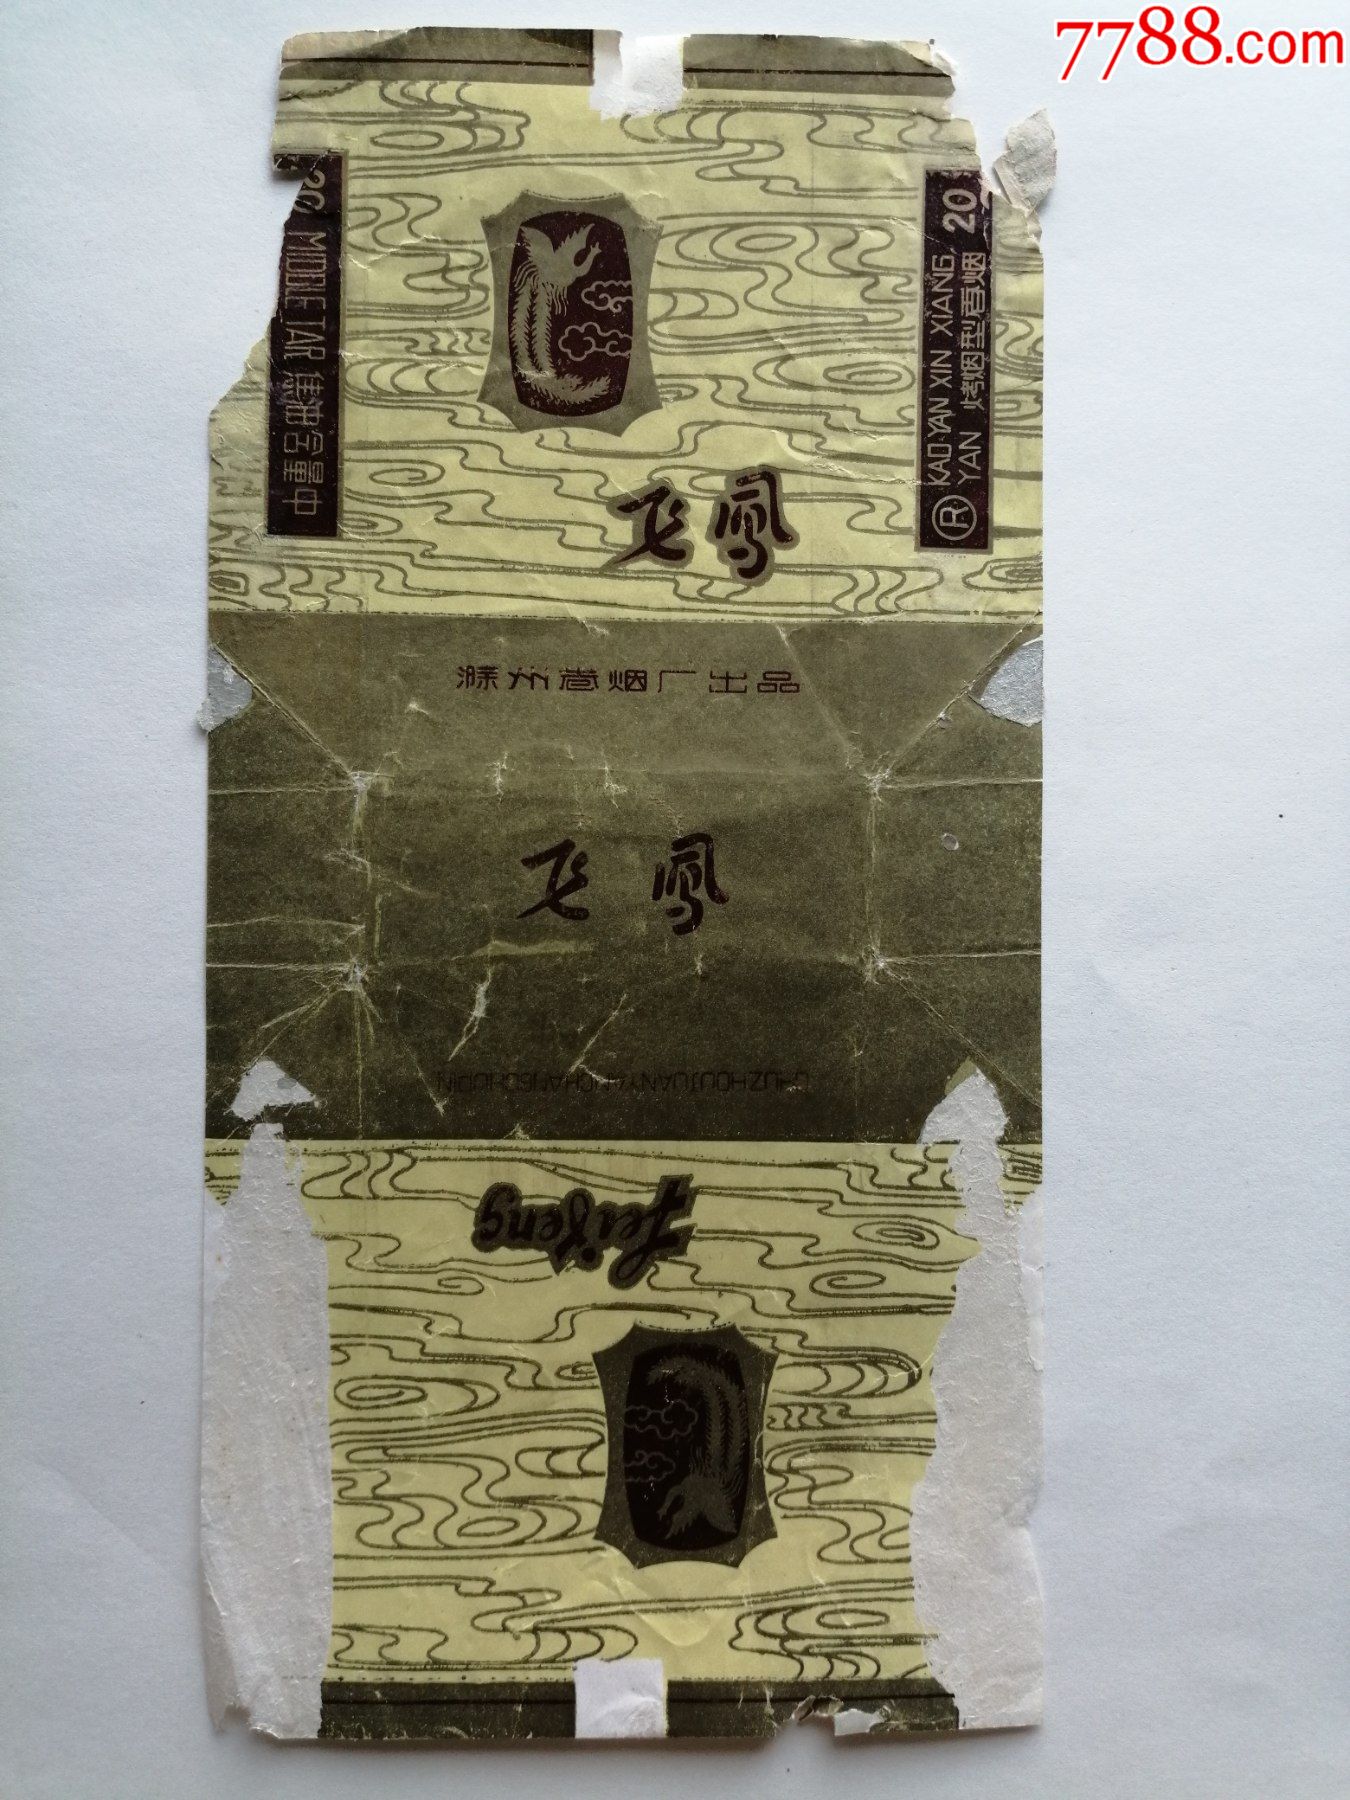 7788.com
20 MIDDLE TAR 焦油含量中
20
KAO YAN XIN XIANG
YAN 烤烟型香烟
®
飞凤
滁州卷烟厂出品
飞凤
CHUZHOUJUANYANCHANGCHUPIN
feifeng